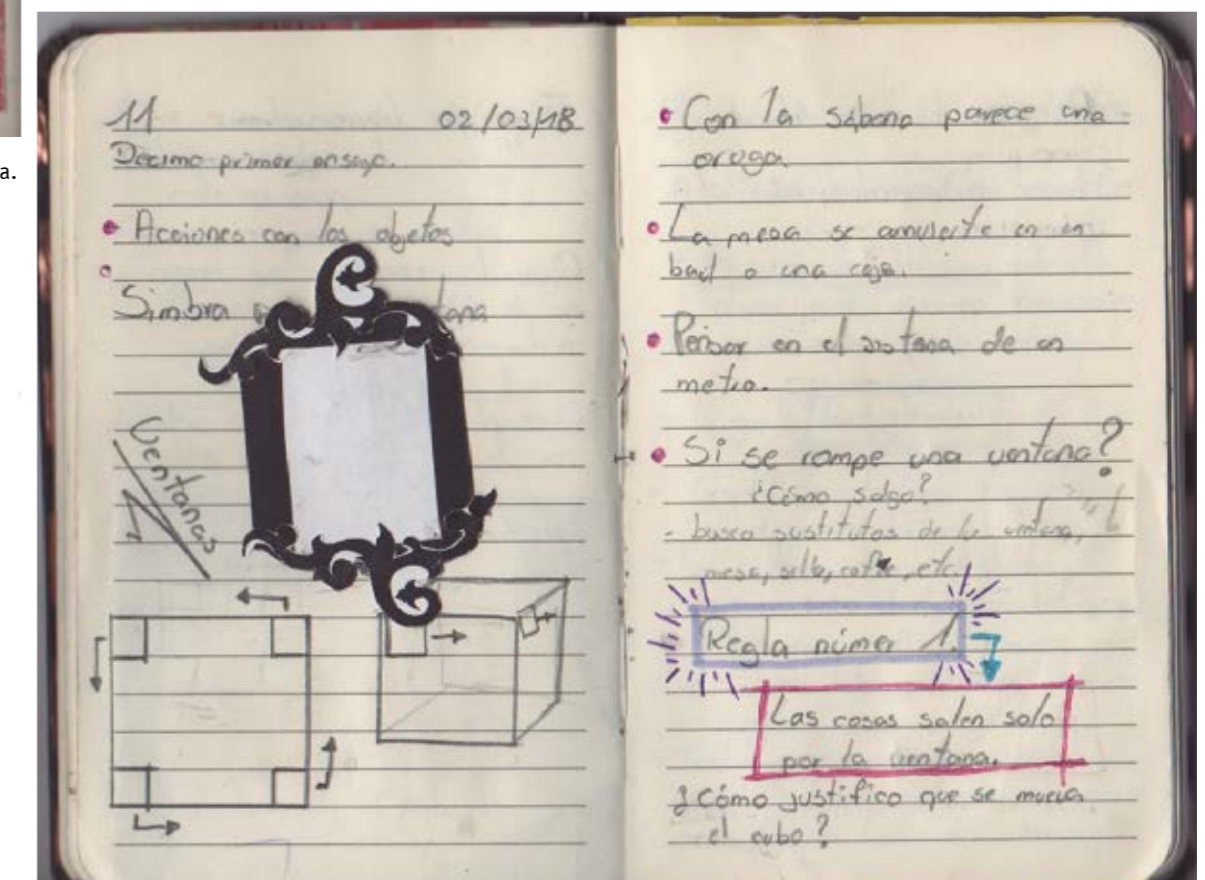 a.
11 02/03/18
Decimo primer ensayo.
Acciones con los objetos
Simbra
Ventanas
Con la sábana parece una
oruga.
La mesa se convierte en un
baúl o una caja.
Pensar en el sistema de un
metro.
Si se rompe una ventana?
¿Cómo salgo?
- busca sustitutos de la ventana,
mesa, silla, cofre, etc.
Regla númer 1.
Las cosas salen solo
por la ventana.
¿Cómo justifico que se mueva
el cubo?